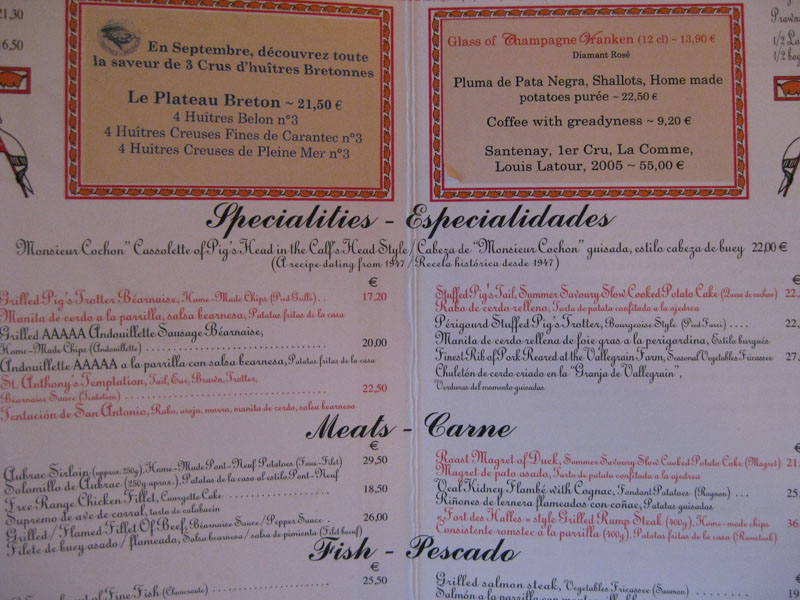 21,30
16,50
En Septembre, découvrez toute
la saveur de 3 Crus d'huîtres Bretonnes
Le Plateau Breton ~ 21,50 €
4 Huîtres Belon n°3
4 Huîtres Creuses Fines de Carantec n°3
4 Huîtres Creuses de Pleine Mer n°3
Glass of Champagne Vranken (12 cl) ~ 13,90 €
Diamant Rosé
Pluma de Pata Negra, Shallots, Home made
potatoes purée ~ 22,50 €
Coffee with greadyness ~ 9,20 €
Santenay, 1er Cru, La Comme,
Louis Latour, 2005 ~ 55,00 €
Specialities - Especialidades
Monsieur Cochon" Cassolette of Pig's Head in the Calf's Head Style / Cabeza de "Monsieur Cochon" guisada, estilo cabeza de buey 22,00 €
(A recipe dating from 1947 / Receta histórica desde 1947)
€
Grilled Pig's Trotter Béarnaise, Home-Made Chips (Pied Grillé) . . 17,20
Manita de cerdo a la parrilla, salsa bearnesa, Patatas fritas de la casa
Grilled AAAAA Andouillette Sausage Béarnaise,
Home-Made Chips (Andouillette) 20,00
Andouillette AAAAA a la parrilla con salsa bearnesa, Patatas fritas de la casa
St. Anthony's Temptation, Tail, Ear, Brawn, Trotter,
Béarnaise Sauce (Tentation) 22,50
Tentación de San Antonio, Rabo, oreja, morro, manita de cerdo, salsa bearnesa
€
Stuffed Pig's Tail, Summer Savoury Slow Cooked Potato Cake (Queue de cochon) 22
Rabo de cerdo relleno, Tarta de patata confitada a la ajedrea
Périgourd Stuffed Pig's Trotter, Bourgeoise Style (Pied Farci) . . . . 22
Manita de cerdo rellena de foie gras a la perigordina, Estilo burgués
Finest Rib of Pork Reared at the Vallegrain Farm, Seasonal Vegetables Fricassee 27
Chuletón de cerdo criado en la "Granja de Vallegrain",
Verduras del momento guisadas
Meats - Carne
€
Aubrac Sirloin (approx. 250g), Home-Made Pont-Neuf Potatoes (Faux-Filet) 29,50
Solomillo de Aubrac (250g aprox.) Patatas de la casa al estilo Pont-Neuf
Free Range Chicken Fillet, Courgette Cake 18,50
Supremo de ave de corral, tarta de calabacín
Grilled / Flamed Fillet Of Beef, Béarnaise Sauce / Pepper Sauce . 26,00
Filete de buey asado / flameado, Salsa bearnesa / salsa de pimienta (Filet bœuf)
€
Roast Magret of Duck, Summer Savoury Slow Cooked Potato Cake (Magret) 21
Magret de pato asado, Tarta de patata confitada a la ajedrea
Veal Kidney Flambé with Cognac, Fondant Potatoes (Rognon) . . . 25
Riñones de ternera flameados con coñac, Patatas guisadas
« Fort des Halles » style Grilled Rump Steak (400g), Home-made chips 36
Consistente romstec a la parrilla (400g), Patatas fritas de la casa (Rumsteak)
Fish - Pescado
€
of Fine Fish (Choucroute) 25,50
€
Grilled salmon steak, Vegetables Fricassee (Saumon) 19
Salmón a la parrilla con